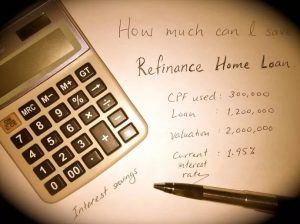 How much can I save
Refinance Home Loan
CPF used : 300,000
Loan : 1,200,000
Valuation : 2,000,000
Current interest rate : 1.95%
Interest savings
MRC M- M+ GT
7 8 9 %
4 5 6 ×
1 2 3 -
0 00 . +